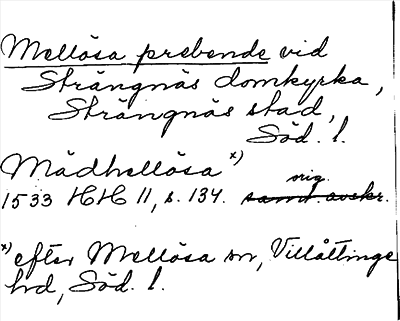 Mellösa prebende vid
Strängnäs domkyrka,
Strängnäs stad,
Söd. l.
Mädhellösa x)
1533 HH 11, s. 134. samt. avskr. orig.
x) efter Mellösa sn, Villåttinge
hd, Söd. l.